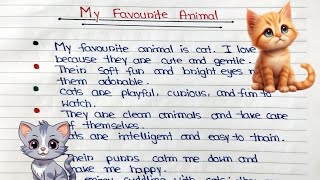 My Favourite Animal
My favourite animal is cat. I love
because they are cute and gentle.
Their soft fun and bright eyes
them adorable.
Cats are playful, curious, and fun to
watch.
They are clean animals and take care
of themselves.
Cats are intelligent and easy to train.
Their purrs calm me down and
make me happy.
enjoy cuddling with cats